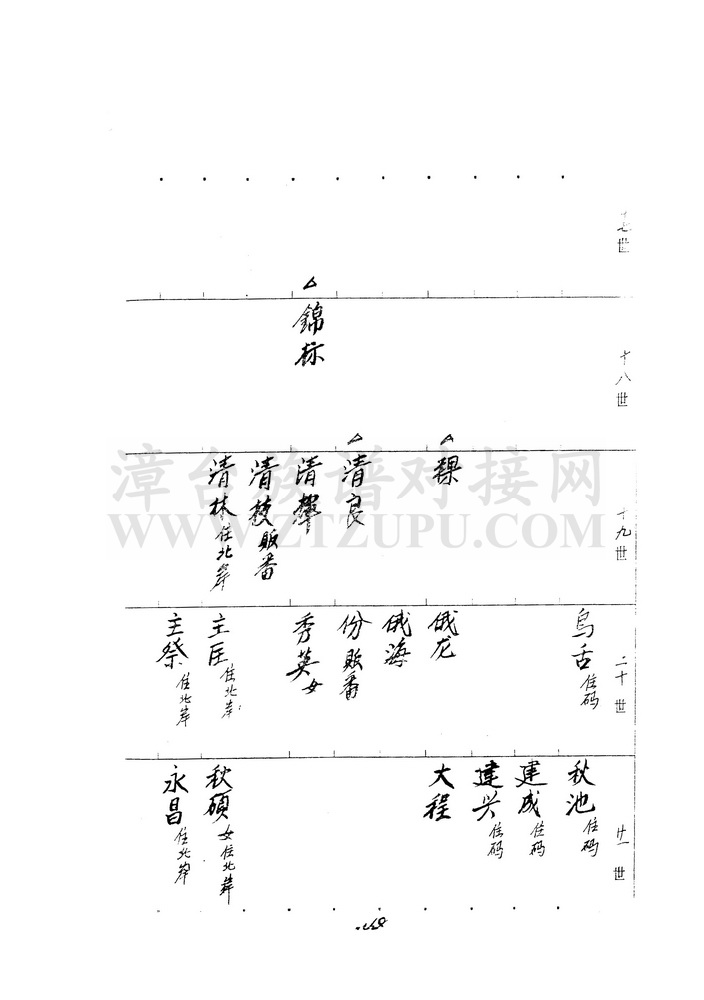 十七世
十八世
錦标
十九世
稞
清良
清攀
清枝 贩番
清林 住北岸
二十世
烏舌 住码
俄龙
俄海
份 贩番
秀英 女
主臣 住北岸
主祭 住北岸
廿一世
秋池 住码
建成 住码
建兴 住码
大程
秋碩 女住北岸
永昌 住北岸
漳台族谱对接网
WWW.ZTZUPU.COM